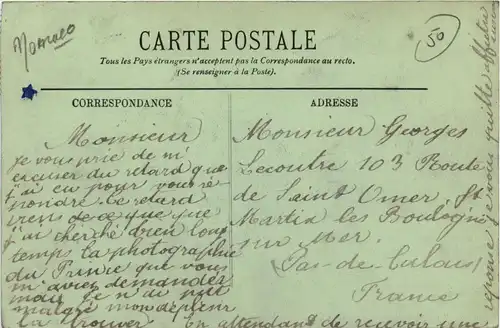 Monaco
50
CARTE POSTALE
Tous les Pays étrangers n'acceptent pas la Correspondance au recto.
(Se renseigner à la Poste).
CORRESPONDANCE
Monsieur
Je vous prie de m'
excuser du retard que
j'ai eu pour vous ré-
pondre. Ce retard
viens de ce que que
j'ai cherché bien long
temps la photographie
du Prince que vous
m'aviez demander
mais je n'ai put
malgré mon
la trouver. En attendant de recevoir une
réponse
ADRESSE
Monsieur Georges
Lecoutre 103 Route
de Saint Omer. St
Martin les Boulogne
sur Mer.
Pas-de-Calais
France